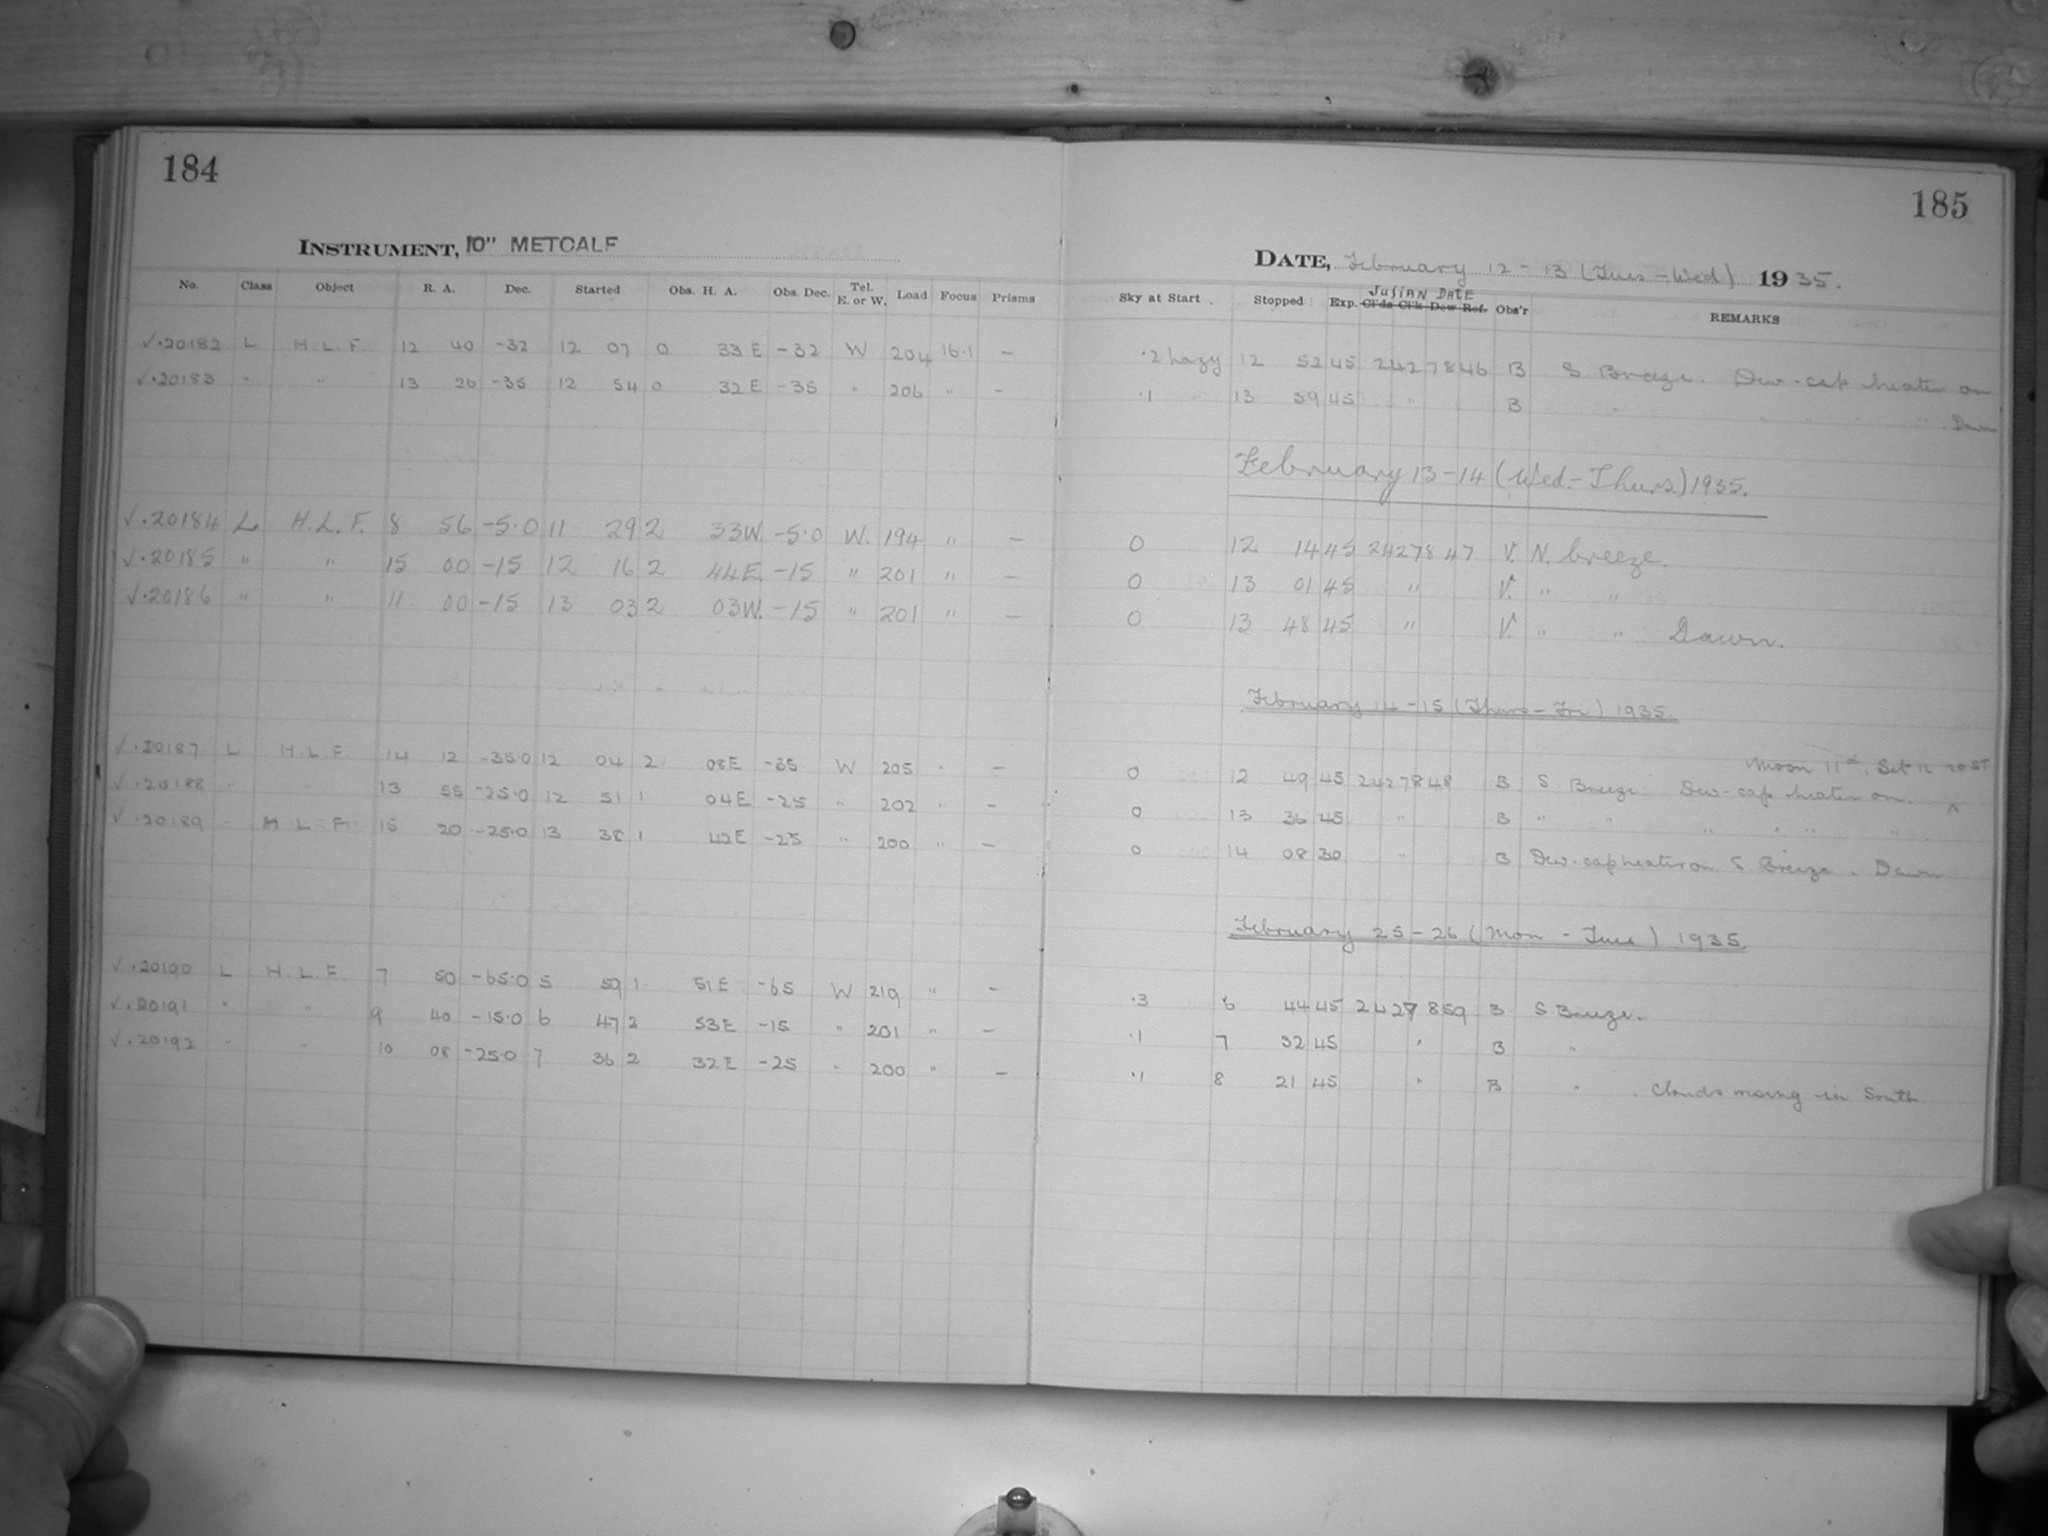 184
INSTRUMENT, 10" METCALF
No. Class Object R. A. Dec. Started Obs. H. A. Obs. Dec. Tel. E. or W. Load Focus Prisms
√.20182 L H.L.F. 12 40 -32 12 07 0 33 E -32 W 204 16.1 —
√.20183 " " 13 26 -35 12 54 0 32 E -35 " 206 " —
√.20184 L H.L.F. 8 56 -5.0 11 29 2 33W. -5.0 W. 194 " —
√.20185 " " 15 00 -15 12 16 2 44E. -15 " 201 " —
√.20186 " " 11 00 -15 13 03 2 03W. -15 " 201 " —
√.20187 L H.L.F. 14 12 -35.0 12 04 2 08E -35 W 205 " —
√.20188 " " 13 55 -25.0 12 51 1 04E -25 " 202 " —
√.20189 " H.L.F. 15 20 -25.0 13 38 1 42E -25 " 200 " —
√.20190 L H.L.F. 7 50 -65.0 5 59 1 51E -65 W 219 " —
√.20191 " " 9 40 -15.0 6 47 2 53E -15 " 201 " —
√.20192 " " 10 08 -25.0 7 36 2 32E -25 " 200 " —
185
DATE, February 12-13 (Tues-Wed) 1935.
JULIAN DATE
Sky at Start Stopped Exp. Cl'ds Cl'k Dew Ref. Obs'r REMARKS
.2 hazy 12 52 45 2427846 B S Breeze. Dew-cap heater on
.1 13 39 45 " B " Dawn
February 13-14 (Wed.-Thurs.) 1935.
0 12 14 45 2427847 V. N. breeze.
0 13 01 45 " V. " "
0 13 48 45 " V. " " Dawn.
February 14-15 (Thurs-Fri) 1935.
Moon 11d. Set 12 20 ST
0 12 49 45 2427848 B S Breeze Dew-cap heater on. ^
0 13 36 45 " B " " " " " "
0 14 08 30 " B Dew-cap heater on. S. Breeze. Dawn
February 25-26 (Mon-Tues) 1935.
.3 6 44 45 2427859 B S Breeze.
.1 7 32 45 " B "
.1 8 21 45 " B " . Clouds moving in South